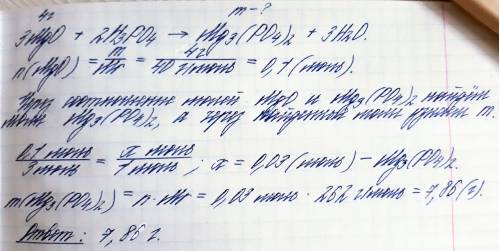 4г m-?
3MgO + 2H3PO4 → Mg3(PO4)2 + 3H2O.
n(MgO) = m/Mr = 4г/40 г/моль = 0,1 (моль).
Через соотношение молей MgO и Mg3(PO4)2 найдём
моли Mg3(PO4)2, а через найденные моли узнаем m.
0,1 моль/3 моль = x моль/1 моль; x = 0,03 (моль) – Mg3(PO4)2.
m(Mg3(PO4)2) = n · Mr = 0,03 моль · 262 г/моль = 7,86 (г).
Ответ: 7,86 г.